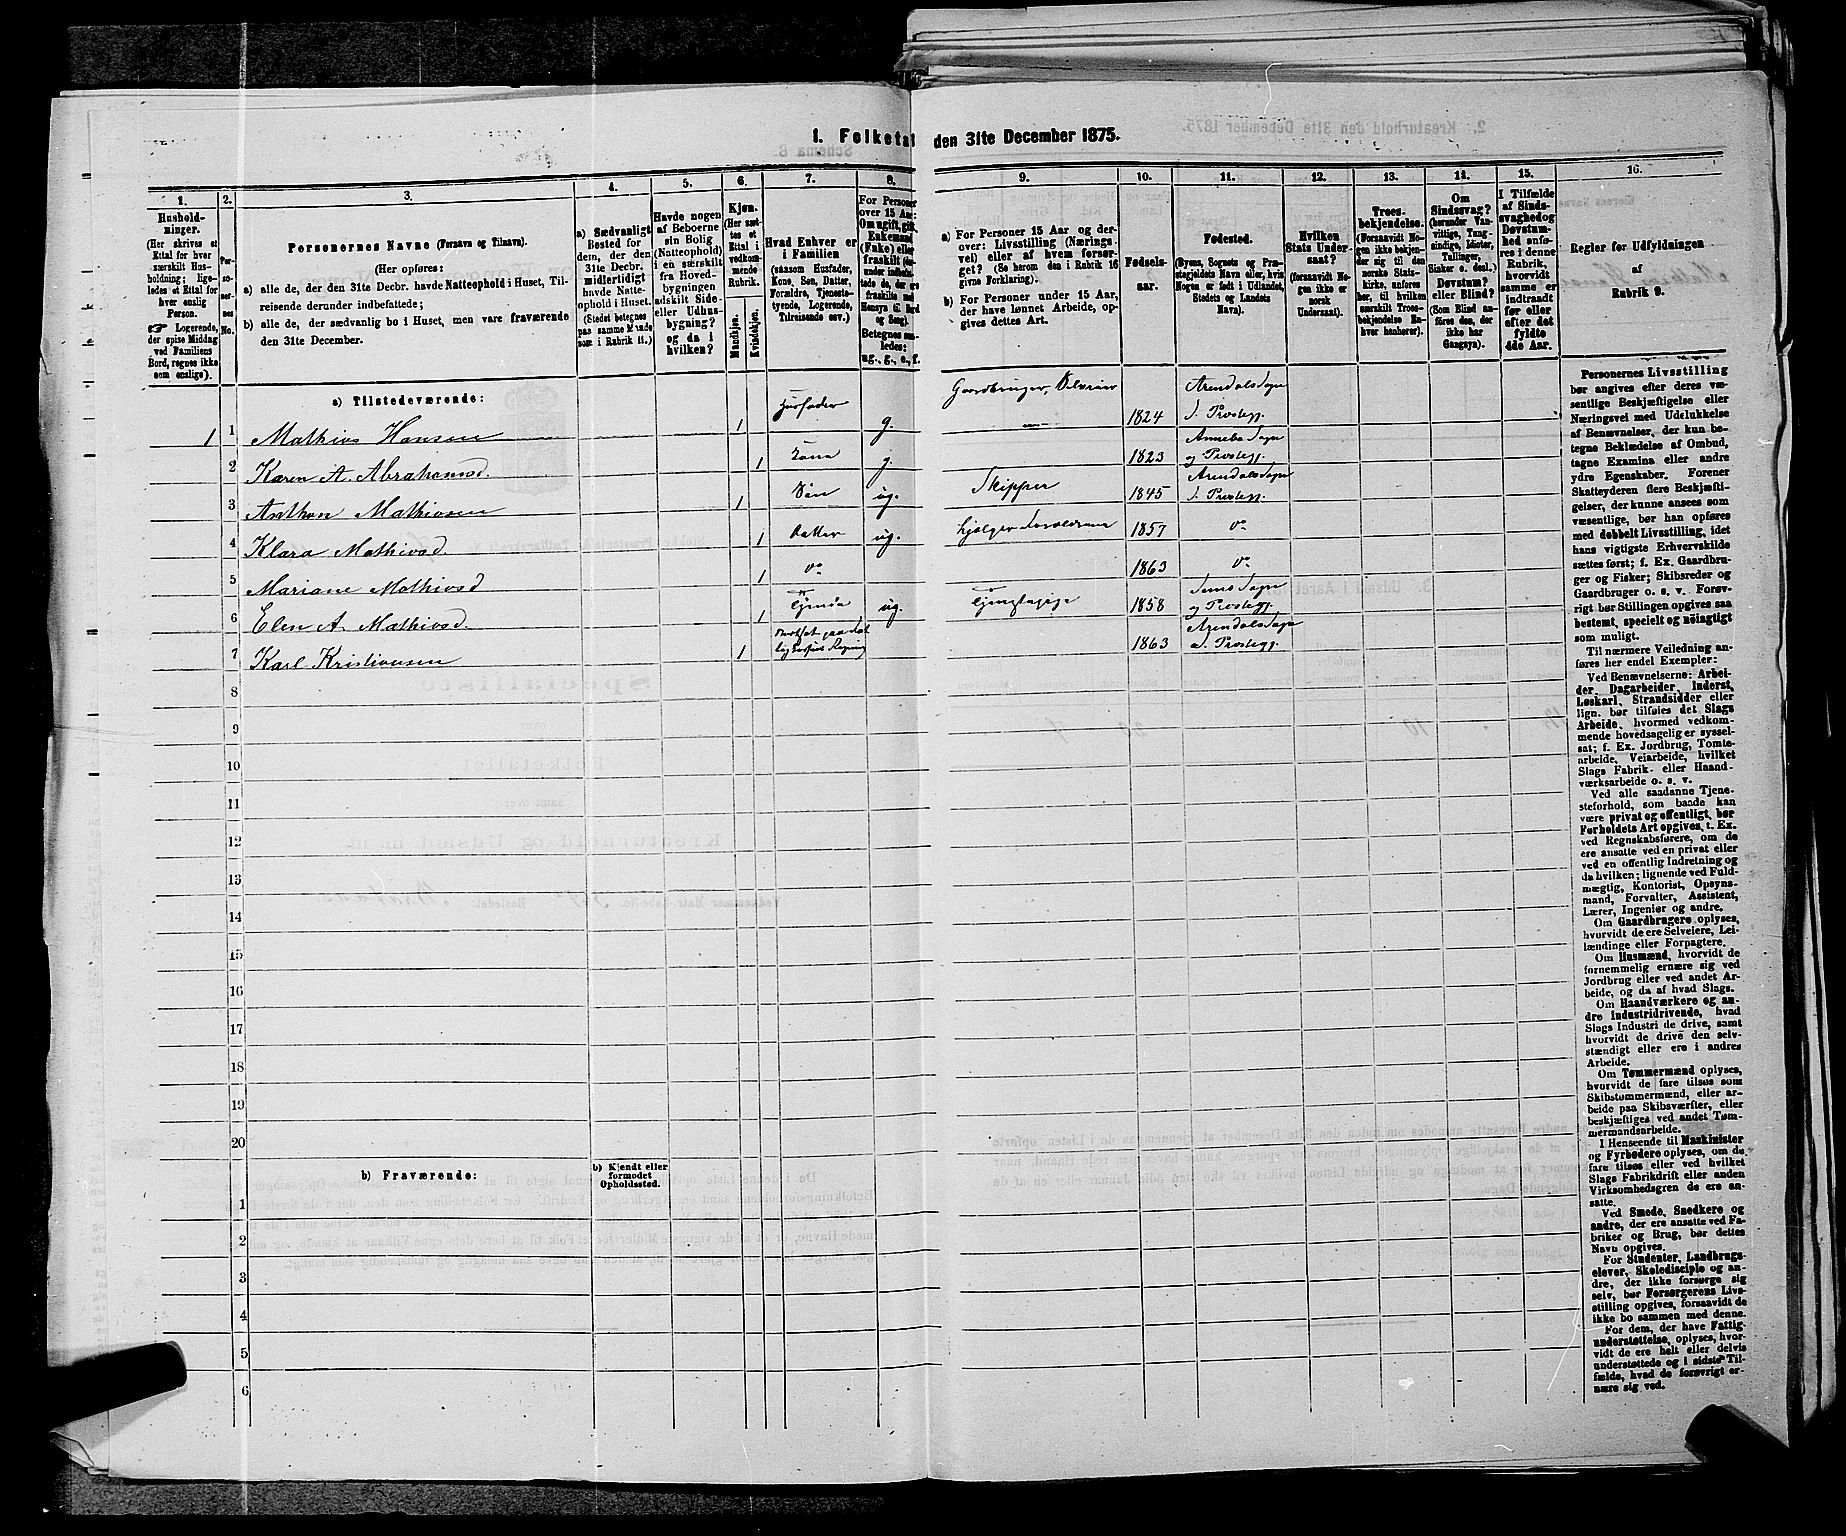 1. Folketal den 31te December 1875.
1.
2.
3.
4.
5.
6.
7.
8.
9.
10.
11.
12.
13.
14.
15.
16.
Hushold-
ninger.
(Her skrives et
Ettal for hver
særskilt Hus-
holdning; lige-
ledes et Ettal for
hver enslig
Person.
☞ Logerende,
der spise Middag
ved Familiens
Bord, regnes ikke
som enslige).
Per-
so-
ner-
nes
No.
Personernes Navne (Fornavn og Tilnavn).
(Her opføres:
a) alle de, der den 31te Decbr. havde Natteophold i Huset, Til-
reisende derunder indbefattede;
b) alle de, der sædvanlig bo i Huset, men vare fraværende
den 31te December.
a) Sædvanligt
Bosted for
dem, der den
31te Decbr.
midlertidigt
havde Natte-
ophold i Huset.
(Stedet betegnes
paa samme Maade
som i Rubrik 11.)
Havde nogen
af Beboerne
sin Bolig
(Natteophold)
i en særskilt
fra Hoved-
bygningen
adskilt Side-
eller Udhus-
bygning?
og da i
hvilken?
Kjøn.
(Her sæt-
tes et
Ettal i
vedkom-
mende
Rubrik.
Mandkjøn.
Kvindekjøn.
Hvad Enhver er
i Familien
(saasom Husfader,
Kone, Søn, Datter,
Forældre, Tjeneste-
tyende, Logerende,
Tilreisende osv.)
For Personer
over 15 Aar:
Om ugift, gift,
Enkemand
(Enke) eller
fraskilt
Betegnes saa-
ledes:
ug., g., e., f.
a) For Personer 15 Aar og der-
over: Livsstilling (Nærings-
vei) eller af hvem forsør-
get? (Se herom den i Rubrik 16
givne Forklaring).
b) For Personer under 15 Aar,
der have lønnet Arbeide, op-
gives dettes Art.
Fødsels-
aar.
Fødested.
(Byens, Sognets og Præ-
stegjeldets Navn eller, hvis
Nogen er født i Udlandet,
Stedets og Landets
Navn).
Hvilken
Stats Under-
saat?
(forsaavidt No-
gen ikke er
norsk
Undersaat).
Troes-
bekjendelse.
(Forsaavidt No-
gen ikke bekjen-
der sig til den
norske Stats-
kirke, anføres
her, til hvilken
særskilt Troes-
bekjendelse En-
hver henhører).
Om
Sindssvag?
(herunder Van-
vittige, Tung-
sindige, Idioter,
Tullinger,
Sinker o. desl.)
Døvstum?
eller Blind?
(Som Blind an-
føres den, der
ikke har
Gangsyn).
I Tilfælde
af Sinds-
svaghed og
Døvstum-
hed anfø-
res i denne
Rubrik,
hvorvidt
samme er
indtraadt
før eller
efter det
fyldte
4de Aar.
Regler for Udfyldningen
af
Rubrik 9.
a) Tilstedeværende:
1 1 Mathias Hansen 1 Husfader g. Gaardbruger, Selveier 1824 Arendals Sogn
2 Karen A. Abrahamsd. 1 Kone g. 1823 og Prestegj.
3 Anthon Mathiesen 1 Søn ug. Skipper 1845 Arendals Sogn
4 Klara Mathiesd. 1 Datter ug. hjelper Forældrene 1857 do
5 Mariane Mathiesd 1 do 1863 do
6 Elen A. Mathiesd. 1 Tjende ug. Tjenstepige 1858 og Prestegj.
7 Karl Kristiansen 1 1863 Arendals Sogn
8
9
10
11
12
13
14
15
16
17
18
19
20
b) Fraværende:
b) Kjendt eller
formodet
Opholdssted.
1
2
3
4
5
6
Personernes Livsstilling
bør angives efter deres væ-
sentlige Beskjæftigelse eller
Næringsvei med Udelukkelse
af Benævnelser, der kun be-
tegne Beklædelse af Ombud,
tagne Examina eller andre
ydre Egenskaber. Forener
Skatteyderen flere Beskjæfti-
gelser, der kunne ansees som
væsentlige, bør han opføres
med dobbelt Livsstilling, idet
hans vigtigste Erhvervskilde
sættes først; f. Ex. Gaardbru-
ger og Fisker; Skibsreder og
Gaardbruger o. s. v. Forøv-
rigt bør Stillingen opgives saa
bestemt, specielt og nøiagtigt
som muligt.
Til nærmere Veiledning an-
føres her endel Exempler:
Ved Benævnelserne: Arbei-
der, Dagarbeider, Inderst,
Løskarl, Strandsidder eller
lign. bør tilføies det Slags
Arbeide, hvormed vedkom-
mende hovedsagelig er syssel-
sat; f. Ex. Jordbrug, Tomte-
arbeide, Veiarbeide, hvilket
Slags Fabrik- eller Haand-
værksarbeide o. s. v.
Ved alle saadanne Tjene-
steforhold, som baade kan
være privat og offentligt, bør
Forholdets Art opgives, t. Ex.
ved Regnskabsførere, om de
ere ansatte ved en privat eller
ved en offentlig Indretning og
da hvilken; lignende ved Fuld-
mægtig, Kontorist, Opsyns-
mand, Forvalter, Assistent,
Lærer, Ingeniør og andre.
Om Gaardbrugere oplyses,
hvorvidt de ere Selveiere, Lei-
lændinge eller Forpagtere.
Om Husmænd, hvorvidt de
fornemmelig ernære sig ved
Jordbrug eller ved andet Ar-
beide, og da af hvad Slags.
Om Haandværkere og an-
dre Industridrivende, hvad
Slags Industri de drive, samt
hvorvidt de drive den selv-
stændigt eller ere i andres
Arbeide.
Om Tømmermænd oplyses,
hvorvidt de fare tilsøs som
Skibstømmermænd, eller ar-
beide paa Skibsværfter, eller
beskjæftiges ved andet Tøm-
mermandsarbeide.
I Henseende til Maskinister
og Fyrbødere oplyses, om de
fare tilsøs eller ved hvilket
Slags Fabrikdrift eller anden
Virksomhedsgren de ere an-
satte.
Ved Smede, Snedkere og
andre, der ere ansatte ved Fa-
briker og Brug, bør dettes
Navn opgives.
For Studenter, Landbrugs-
elever, Skoledisciple og an-
dre, der ikke forsørge sig
selv, bør Forsørgerens Livs-
stilling opgives, forsaavidt de
ikke bo sammen med denne.
For dem, der have Fattig-
understøttelse, oplyses, hvor-
vidt de ere helt eller delvis
understøttede og i sidste Til-
fælde, hvad de forøvrigt er-
nære sig ved.